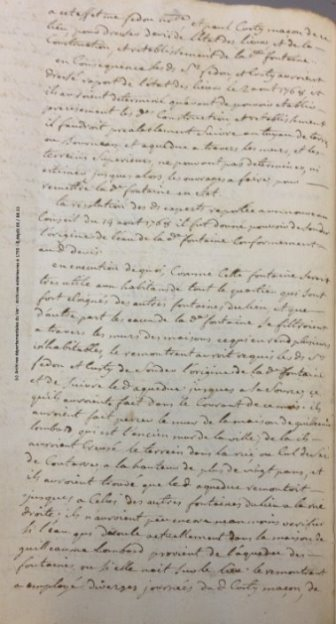 a cet effet me fedon no.re et paul Corty maçon de ce
lieu, pour dresser devis de l'état des lieux et de la
Construction et retablissement de la d.e fontaine.
en Consequence les ds Srs fedon et Corty auroient
dressé raport de l'état des lieux le 2 aout 1768 et
ils auroient determiné qu'avant de pouvoir établir
precisement les des Construction et retablissement
il faudroit prealablement Suivre un tuyau de
ou Bourneau et aqueduc a travers les murs, et les
terreins Superieures ne pouvant pas determiner, ni
estimer jusques alors les ouvrages a faire pour
remettre la d.e fontaine en état.
la relation des ds experts raportée au nouveau
Conseil du 14 aout 1768 il fut donné pouvoir de Sonder
l'origine de l'eau de la d.e fontaine Conformement
au d. devis.
en execution de quoi, Comme Cette fontaine Seroit
tres utile aux habitans de tout le quartier qui Sont
fort éloignés des autres fontaines du lieu, et que
d'autre part les eaux de la d.e fontaine Se filtroient
a travers les murs des maisons ce qui en rend plusieurs
inhabitables, le remontrant auroit requis les ds Srs
fedon et Corty de Sonder l'origine de la d.e fontaine
et de Suivre le d. aqueduc jusques a la Source, ce
qu'ils auroient fait dans le Courant de ce mois: ils
auroient fait percer le mur de la maison de guilleaume
lombard qui est l'ancien mur de la ville; de la ils
auroient Creusé le terrein dans la rue ou
de Contarves a la hauteur de plus de vingt pans, et
ils auroient trouvé que le d. aqueduc remontoit
jusques a Celui des autres fontaines du lieu a la rue
droite: ils n'auroient pas encore neanmoins verifié
Si l'eau qui decoule actuellement dans la maison de
guilleaume Lombard provient de l'aqueduc des
fontaines, ou Si elle nait Sur le lieu. le remontrant
a employé diverses journées du d. Corty maçon, de
(c) Archives départementales du Var - Archives antérieures à 1790